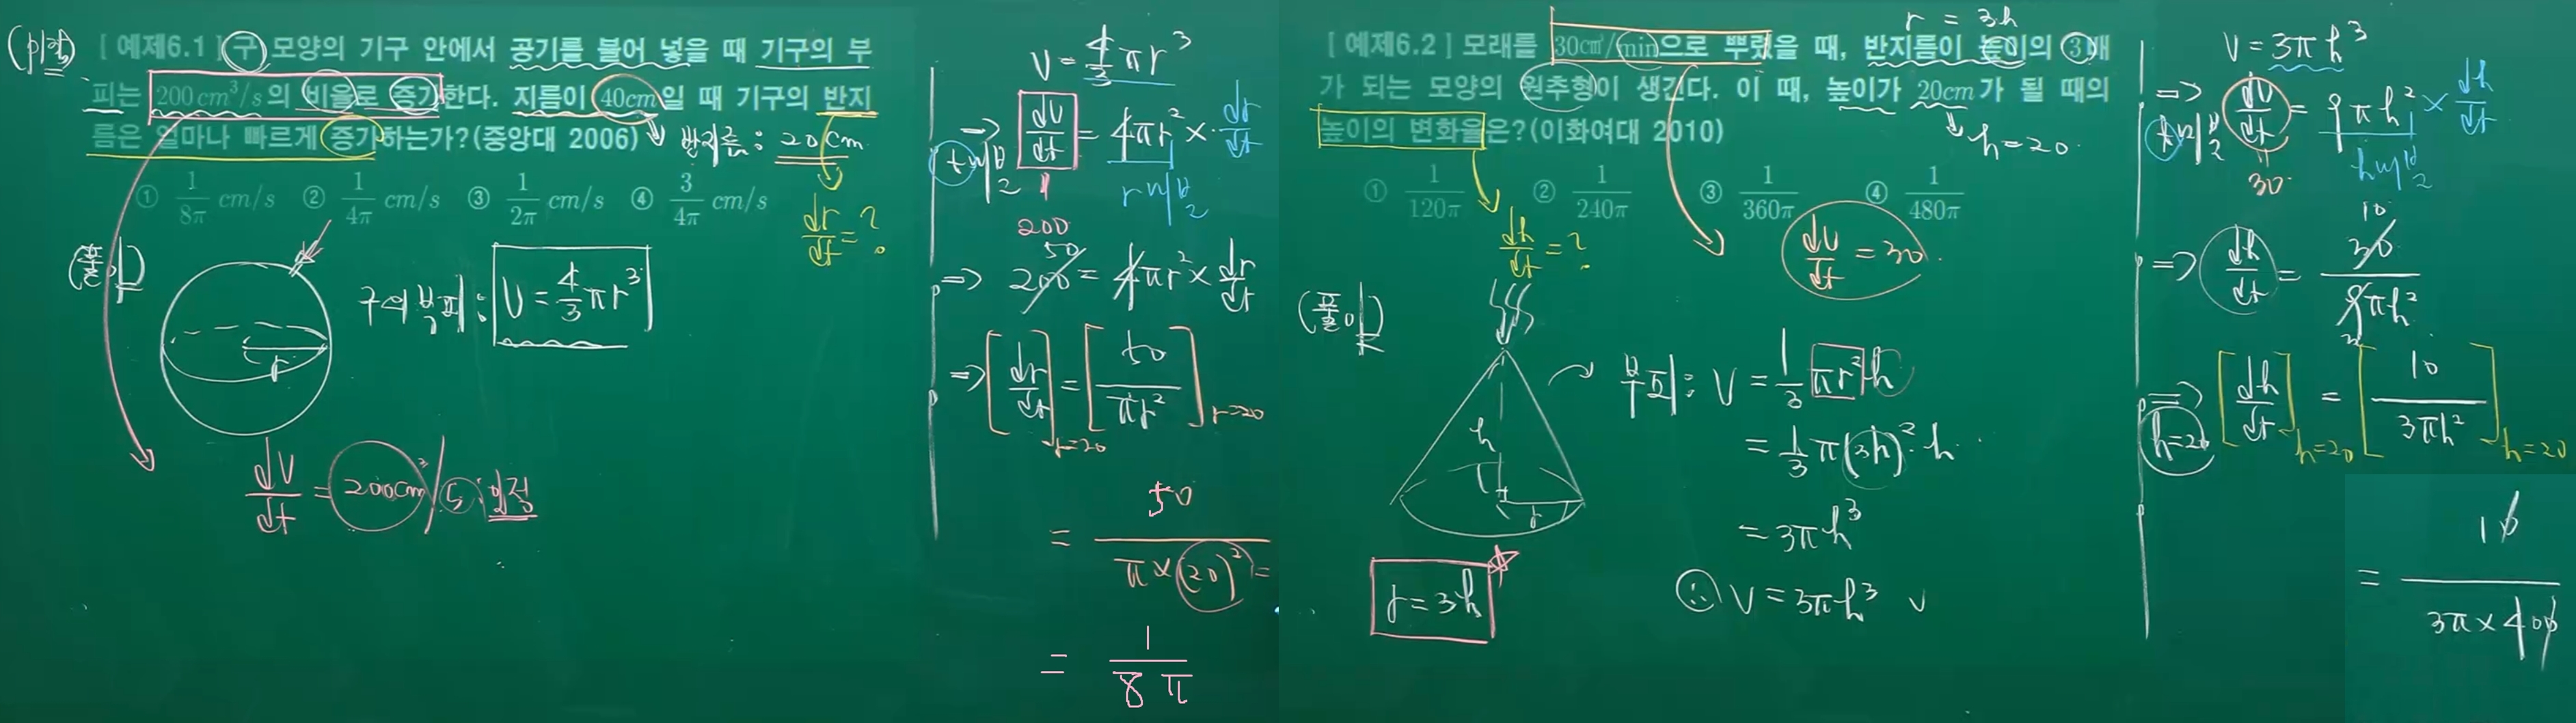 (미적)
[ 예제6.1 ] 구 모양의 기구 안에서 공기를 불어 넣을 때 기구의 부
피는 200cm³/s의 비율로 증가한다. 지름이 40cm일 때 기구의 반지
름은 얼마나 빠르게 증가하는가?(중앙대 2006)
반지름: 20cm
① 1/8π cm/s ② 1/4π cm/s ③ 1/2π cm/s ④ 3/4π cm/s
dr/dt = ?
(풀이)
r
구의 부피: V = 4/3 πr³
dV/dt = 200cm³/s 일정
V = 4/3 πr³
⇒ dV/dt = 4πr² × dr/dt
t미분
r미분
200
⇒ 200 = 4πr² × dr/dt
50
⇒ [dr/dt]r=20 = [50/πr²]r=20
= 50/π×(20)² =
= 1/8π
r = 3h
[ 예제6.2 ] 모래를 30cm³/min으로 뿌렸을 때, 반지름이 높이의 3배
가 되는 모양의 원추형이 생긴다. 이 때, 높이가 20cm가 될 때의
높이의 변화율은?(이화여대 2010)
h=20
① 1/120π ② 1/240π ③ 1/360π ④ 1/480π
dh/dt = ?
dV/dt = 30
(풀이)
h
r
r=3h
부피: V = 1/3 πr²h
= 1/3 π(3h)²·h
= 3πh³
∴ V = 3πh³
V = 3πh³
⇒ dV/dt = 9πh² × dh/dt
t미분
h미분
30
⇒ dh/dt = 30/9πh²
10
3
⇒ [dh/dt]h=20 = [10/3πh²]h=20
h=20
= 10/3π×400